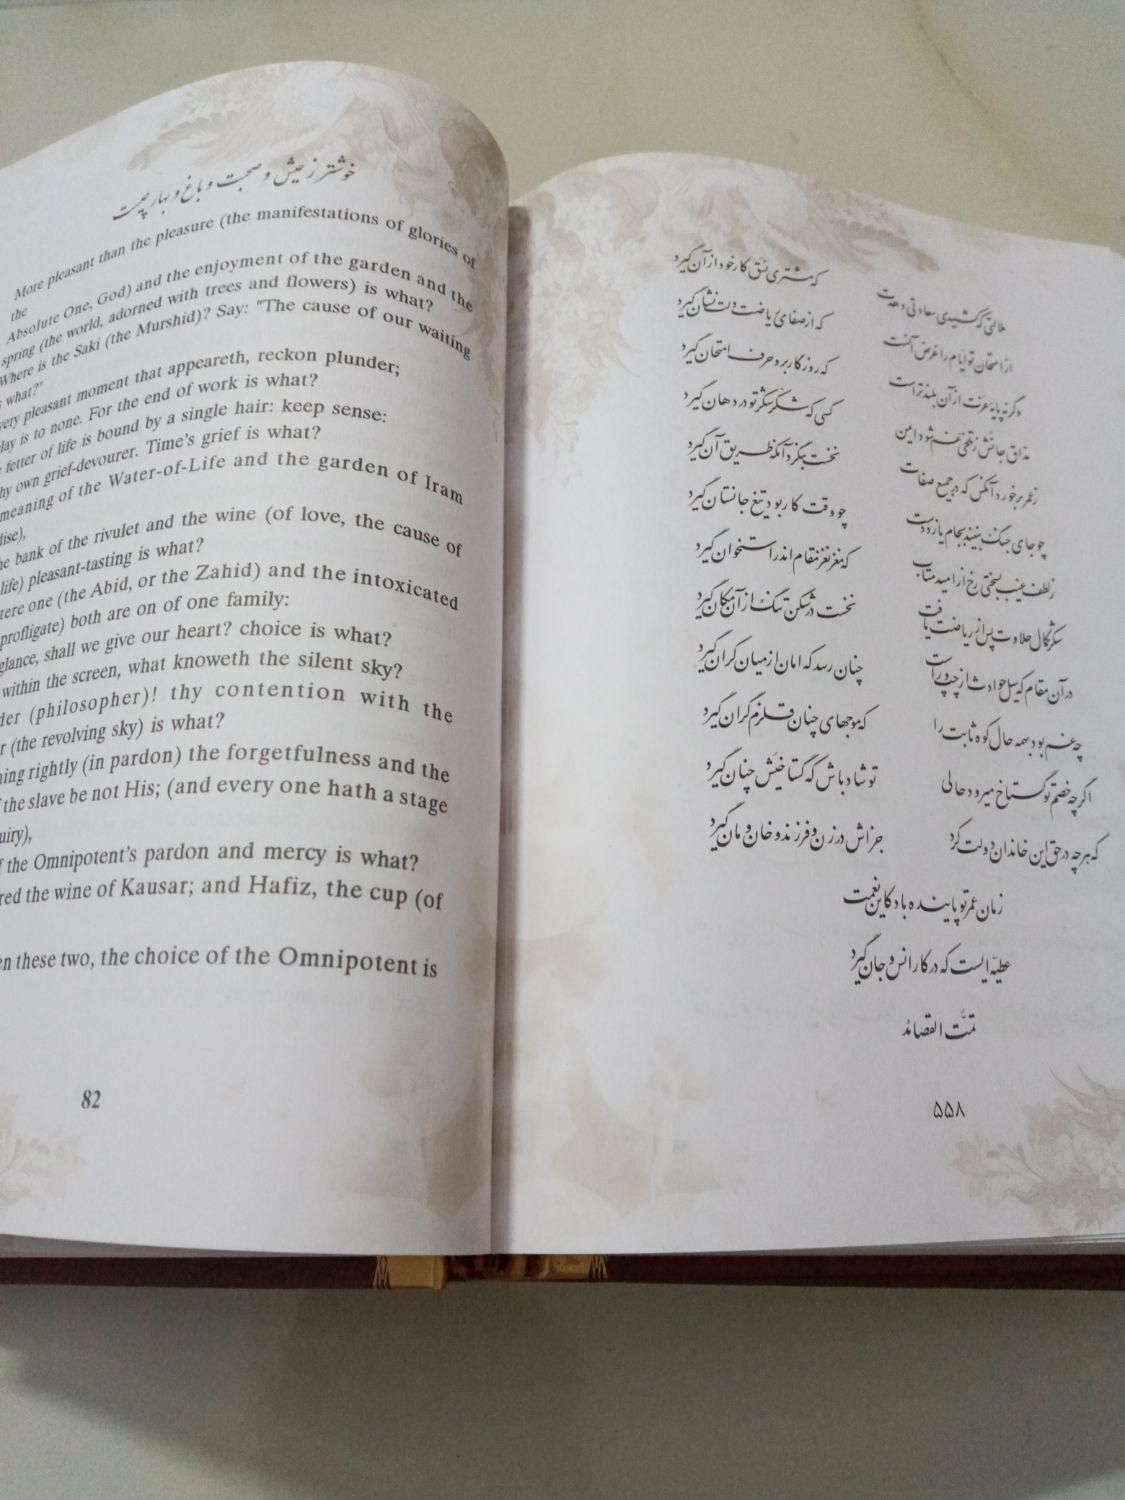 خوشتر ز عیش و صحبت و باغ و بهار چیست
More pleasant than the pleasure (the manifestations of glories of
the
Absolute One, God) and the enjoyment of the garden and the
spring (the world, adorned with trees and flowers) is what?
Where is the Saki (the Murshid)? Say: "The cause of our waiting
what?"
very pleasant moment that appeareth, reckon plunder;
lay is to none. For the end of work is what?
fetter of life is bound by a single hair: keep sense:
hy own grief-devourer. Time's grief is what?
meaning of the Water-of-Life and the garden of Iram
dise),
he bank of the rivulet and the wine (of love, the cause of
life) pleasant-tasting is what?
tere one (the Abid, or the Zahid) and the intoxicated
profligate) both are on of one family:
glance, shall we give our heart? choice is what?
within the screen, what knoweth the silent sky?
der (philosopher)! thy contention with the
r (the revolving sky) is what?
ning rightly (in pardon) the forgetfulness and the
f the slave be not His; (and every one hath a stage
uiry),
f the Omnipotent's pardon and mercy is what?
red the wine of Kausar; and Hafiz, the cup (of
en these two, the choice of the Omnipotent is
82
ملالتی که کشیدی سعادتی دهدت
که مشتری نسق کار خود از آن گیرد
از امتحان تو ایام را غرض آنست
که از صفای ریاضت دلت نشان گیرد
وگرنه پایه عزت از آن بلندتر است
که روزگار بر او حرف امتحان گیرد
مذاق جانش ز تلخی غم شود ایمن
کسی که شکر شکر تو در دهان گیرد
ز عمر برخورد آنکس که در جمیع صفات
نخست بنگرد آنگه طریق آن گیرد
چو جای جنگ نبیند بجام یازد دست
چو وقت کار بود تیغ جانستان گیرد
ز لطف غیب بسختی رخ از امید متاب
که مغز نغز مقام اندر استخوان گیرد
شکر کمال حلاوت پس از ریاضت یافت
نخست در شکن تنگ از آن مکان گیرد
در آن مقام که سیل حوادث از چپ و راست
چنان رسد که امان از میان کران گیرد
چه غم بود بهمه حال کوه ثابت را
که موجهای چنان قلزم گران گیرد
اگرچه خصم تو گستاخ میرود حالی
تو شاد باش که گستاخیش چنان گیرد
که هر چه در حق این خاندان دولت کرد
جزاش در زن و فرزند و خان و مان گیرد
زمان عمر تو پاینده باد کاین نعمت
عطیه ایست که در کار انس و جان گیرد
تمّت القصائد
۵۵۸